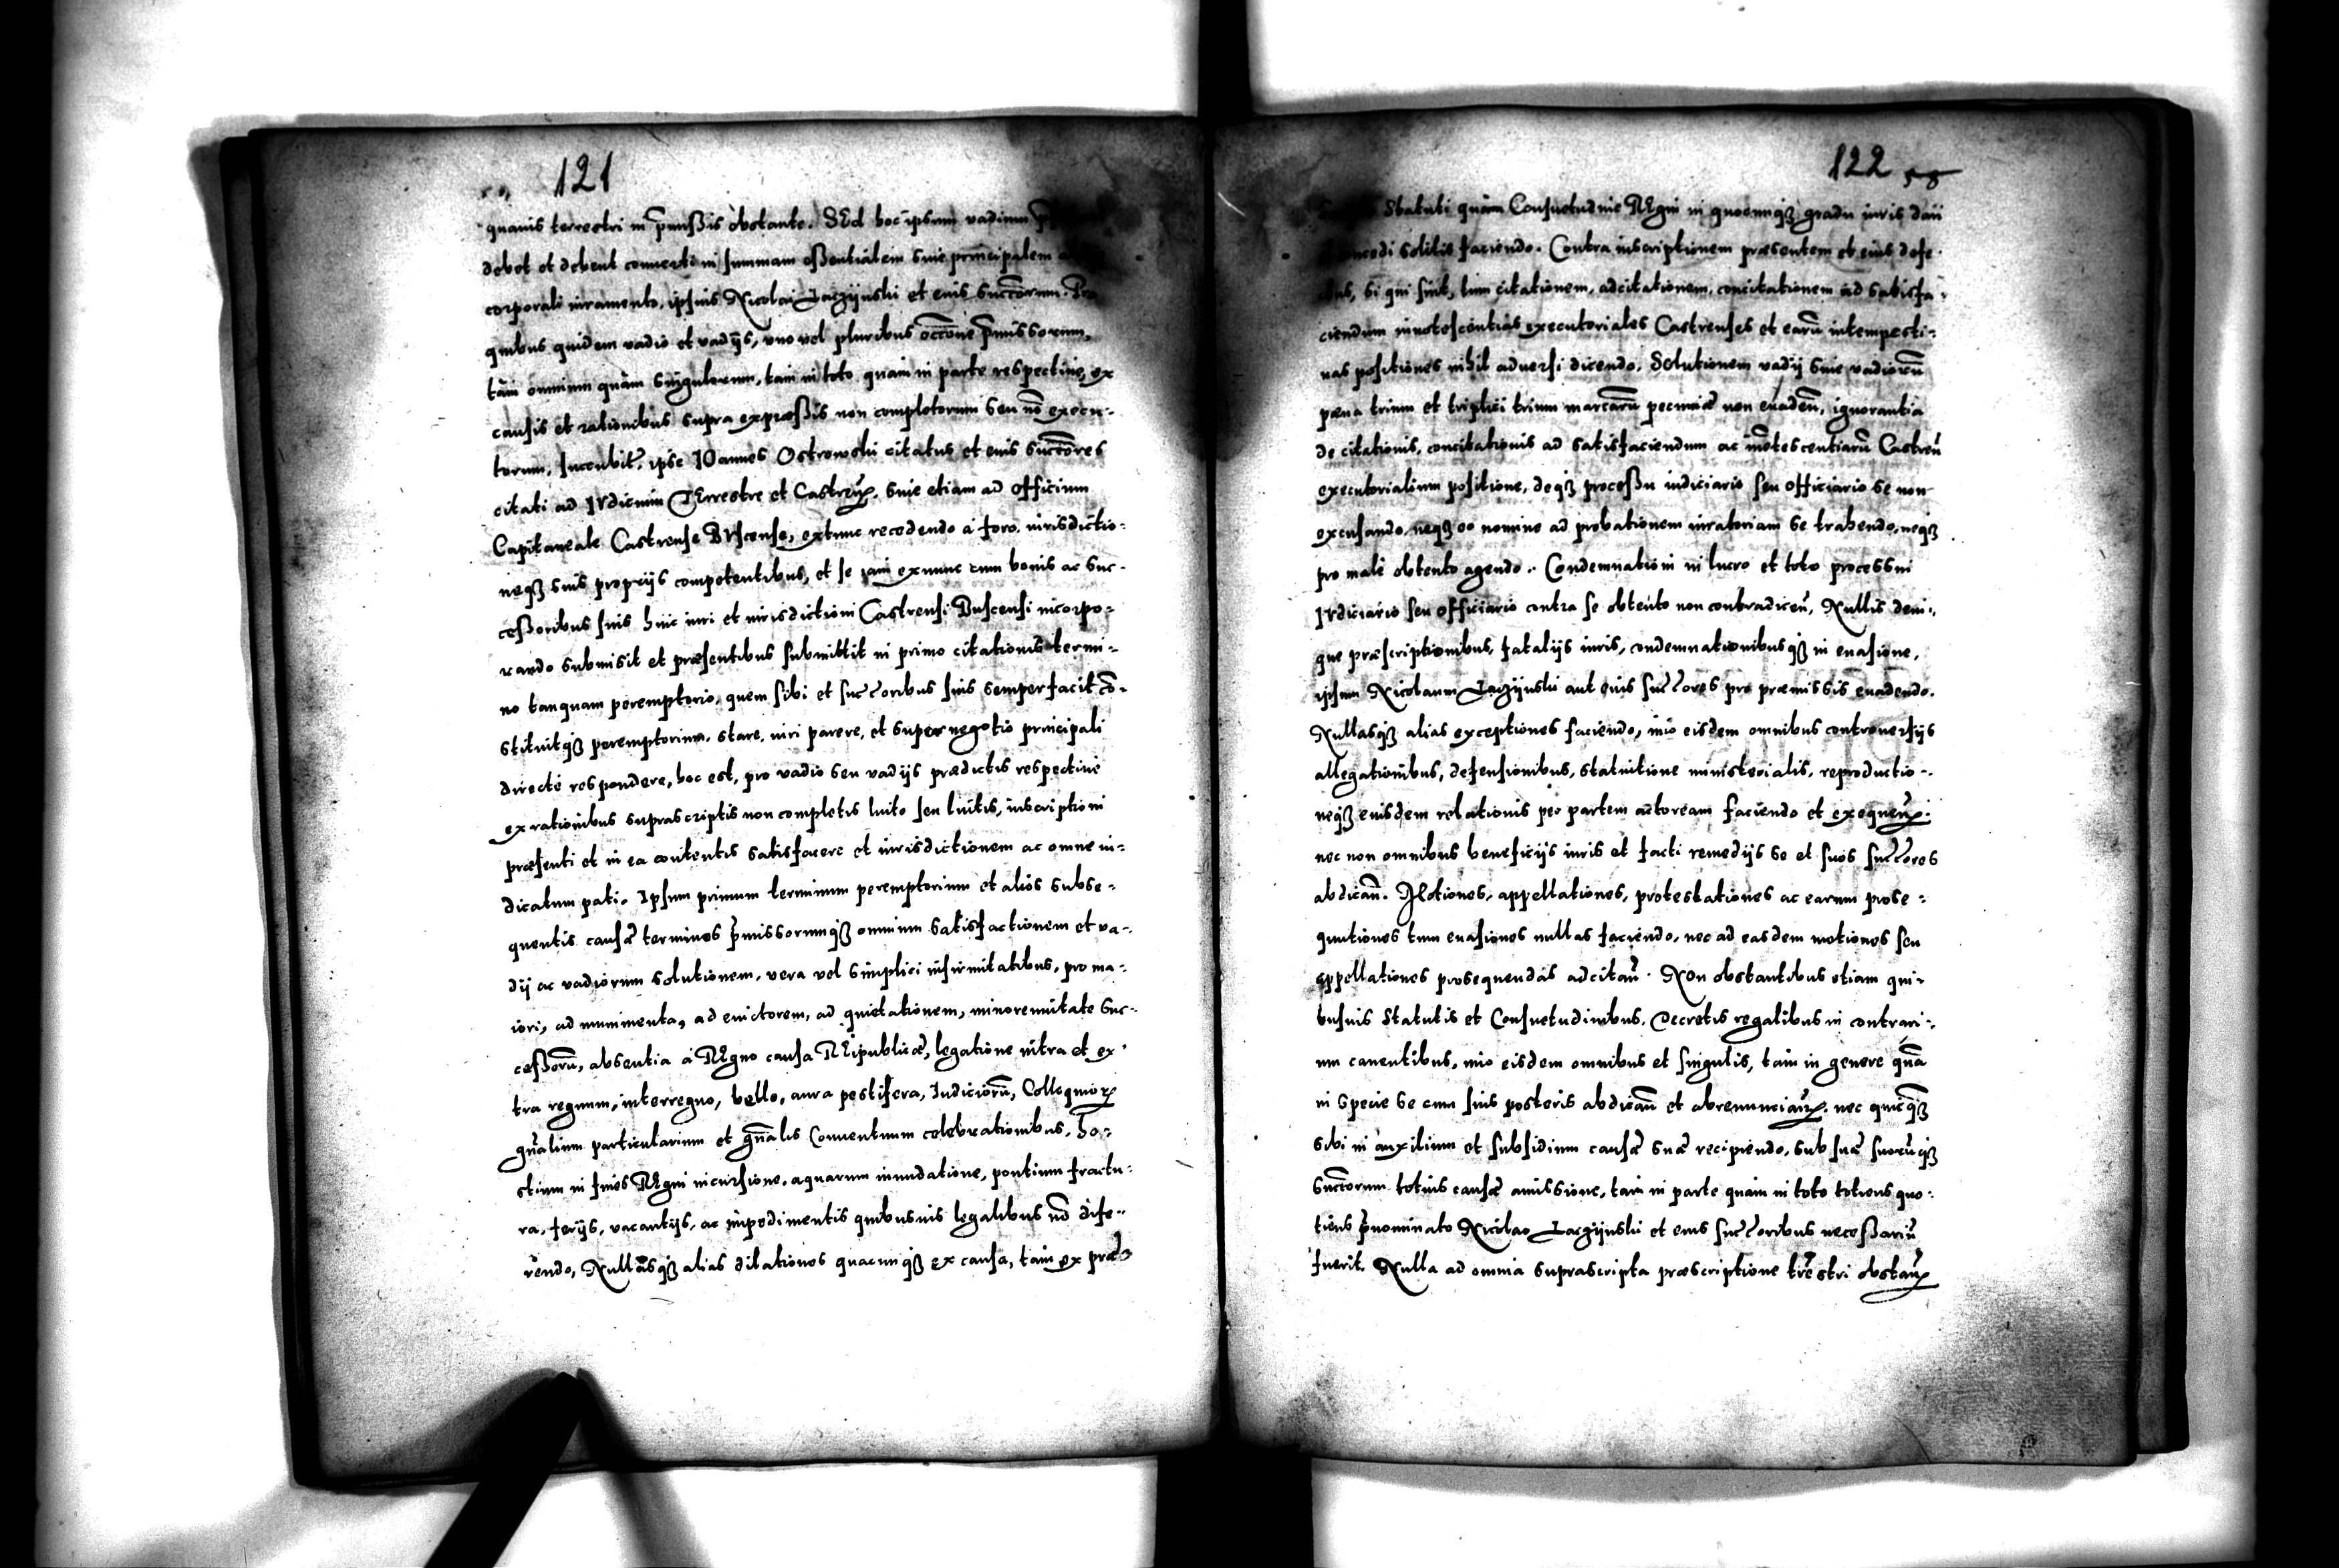 121
quauis terrestri in p̃missis obstante. SEd hoc ipsum vadium
debet et debent conuerti in summam essentialem siue principalem
corporali iuramento, ipsius Nicolai Jaczÿnski et eius succõrum. Pro
quibus quidem vadio et vadÿs, vno vel pluribus occõne p̃missorum,
tàm omnium quàm singulorum, tam in toto quam in parte respectiuè, ex
causis et rationibus supra expressis non completorum seu nõ execu-
torum, Incũbit, ipse IOannes Ostrowski citatus et eius succõres
citati ad IVdicium TErrestre et Castreñ. siue etiam ad officium
Capitaneale Castrense BVscense, extunc recedendo à foro, iurisdictio-
neqȝ suis proprijs competentibus, et se iam exnunc cum bonis ac suc-
cessoribus suis huic iuri et iurisdictioni Castrensi Buscensi incorpo-
rando submisit et præsentibus submittit in primo citationis termi-
no tanquam peremptorio, quem sibi et succ̃oribus suis semper facit cõ-
stituitqȝ peremptorium, stare, iuri parere, et super negotio principali
directè respondere, hoc est, pro vadio seu vadÿs prædictis respectiuè
ex rationibus suprascriptis non completis luito seu luitis, inscriptioni
præsenti et in ea contentis satisfacere et iurisdictionem ac omne iu-
dicatum pati. Ipsum primum terminum peremptorium et alios subse-
quentis causæ terminos p̃missorumqȝ omnium satisfactionem et va-
dÿ ac vadiorum solutionem, vera vel simplici infirmitatibus, pro ma-
iori, ad munimenta, ad euictorem, ad quietationem, minorennitate suc-
cessorũ, absentia à REgno causa REipublicæ, legatione intra et ex-
tra regnum, interregno, bello, aura pestifera, Iudiciorũ, Colloquiorꝝ
gñalium particularium et gñalis Conuentuum celebrationibus, ho-
stium in fines REgni incursione, aquarum inundatione, pontium fractu-
ra, ferÿs, vacantÿs, ac impedimentis quibusuis legalibus nõ dife-
rendo, Nullasqȝ alias dilationes quacunqȝ ex causa, tam ex præ-
122 58
Statuti quàm Consuetudine REgni in quocunqȝ gradu iuris dari
concedi solitis faciendo. Contra inscriptionem præsentem et eius defe-
ctus, si qui sint, tum citationem, adcitationem, concitationem ad satisfa-
ciendum innotescentias executoriales Castrenses et earũ intempesti-
uas positiones nihil aduersi dicendo. Solutionem vadÿ siue vadiorũ
pæna trium et triplici trium marcarũ pecuniæ non euadeñ, ignorantia
de citationis, concitationis ad satisfaciendum ac iñotescentiarũ Castreñ
executorialium positione, deqȝ processu iudiciario seu officiario se non
excusando, neqȝ eo nomine ad probationem iuratoriam se trahendo, neqȝ
pro malè obtento agendo. Condemnationi in lucro et toto processui
IVdiciario seu officiario contra se obtento non contradiceñ, Nullis deni-
que præscriptionibus, fatalÿs iuris, condemnationibusqȝ in euasione,
ipsum Nicolaum Jaczÿnski aut eius succ̃ores pro præmissis euadendo.
Nullasqȝ alias exceptiones faciendo, imo eisdem omnibus controuersÿs
allegationibus, defensionibus, statuitione ministerialis, reproductio-
neqȝ eiusdem relationis per partem actoream faciendo et exequeñ.
nec non omnibus beneficÿs iuris et facti remedÿs se et suos succ̃ores
abdicañ. MOtiones, appellationes, protestationes ac earum prose-
quutiones tum euasiones nullas faciendo, nec ad easdem motiones seu
appellationes prosequendas adcitañ. NOn obstantibus etiam qui-
busuis Statutis et Consuetudinibus, Decretis regalibus in contrari-
um cauentibus, imo eisdem omnibus et singulis, tam in genere quã
in specie se cum suis posteris abdicañ et abrenunciañ. nec quicqȝ
sibi in auxilium et subsidium causæ suæ recipiendo, sub suæ suorũqȝ
succõrum totius causæ amissione, tam in parte quam in toto totiens quo-
tiens p̃nominato Nicolao Jaczÿnski et eius succ̃oribus necessariũ
fuerit. Nulla ad omnia suprascripta præscriptione tr̃estri obstañ